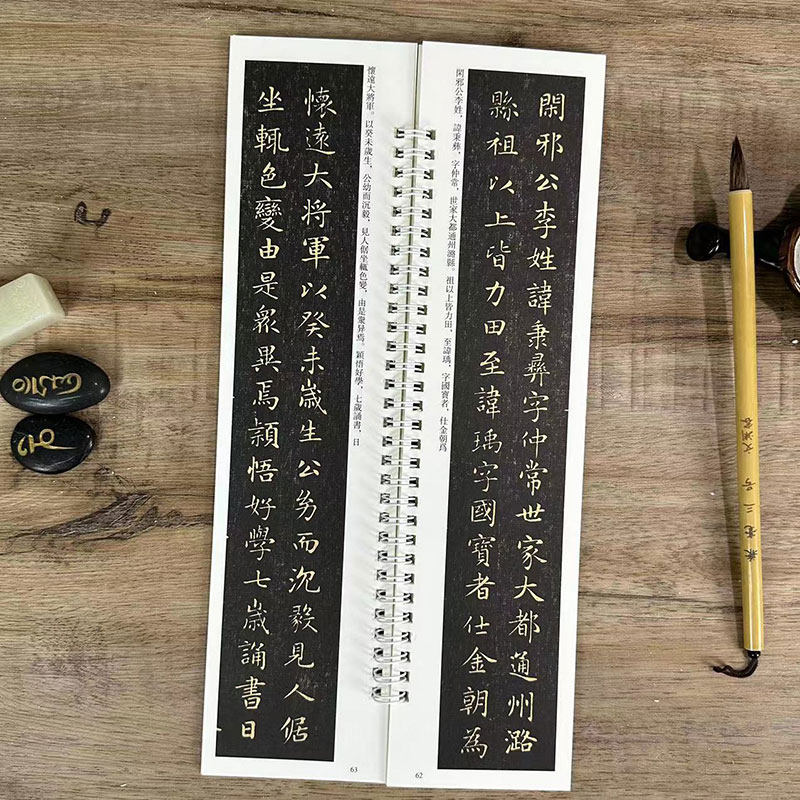 閑邪公李姓諱秉彝字仲常世家大都通州潞
縣祖以上皆力田至諱瑀字國寶者仕金朝為
閑邪公李姓，諱秉彝，字仲常，世家大都通州潞縣。祖以上皆力田，至諱瑀，字國寶者，仕金朝爲
62
懷遠大將軍。以癸未歲生，公幼而沉毅，見人倨坐輒色變，由是衆异焉。穎悟好學，七歲誦書，日
懷遠大将軍以癸未歲生公幼而沉毅見人倨
坐輒色變由是眾異焉穎悟好學七歲誦書日
63
兼毫三号